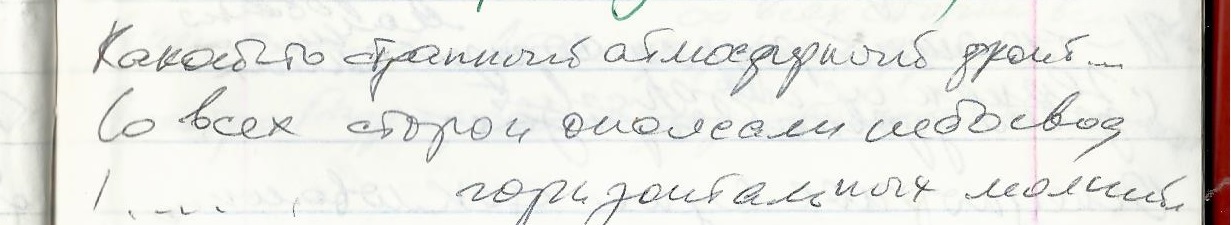 Какой-то странный атмосферный фронт...
Со всех сторон опоясали небосвод
горизонтальных молний